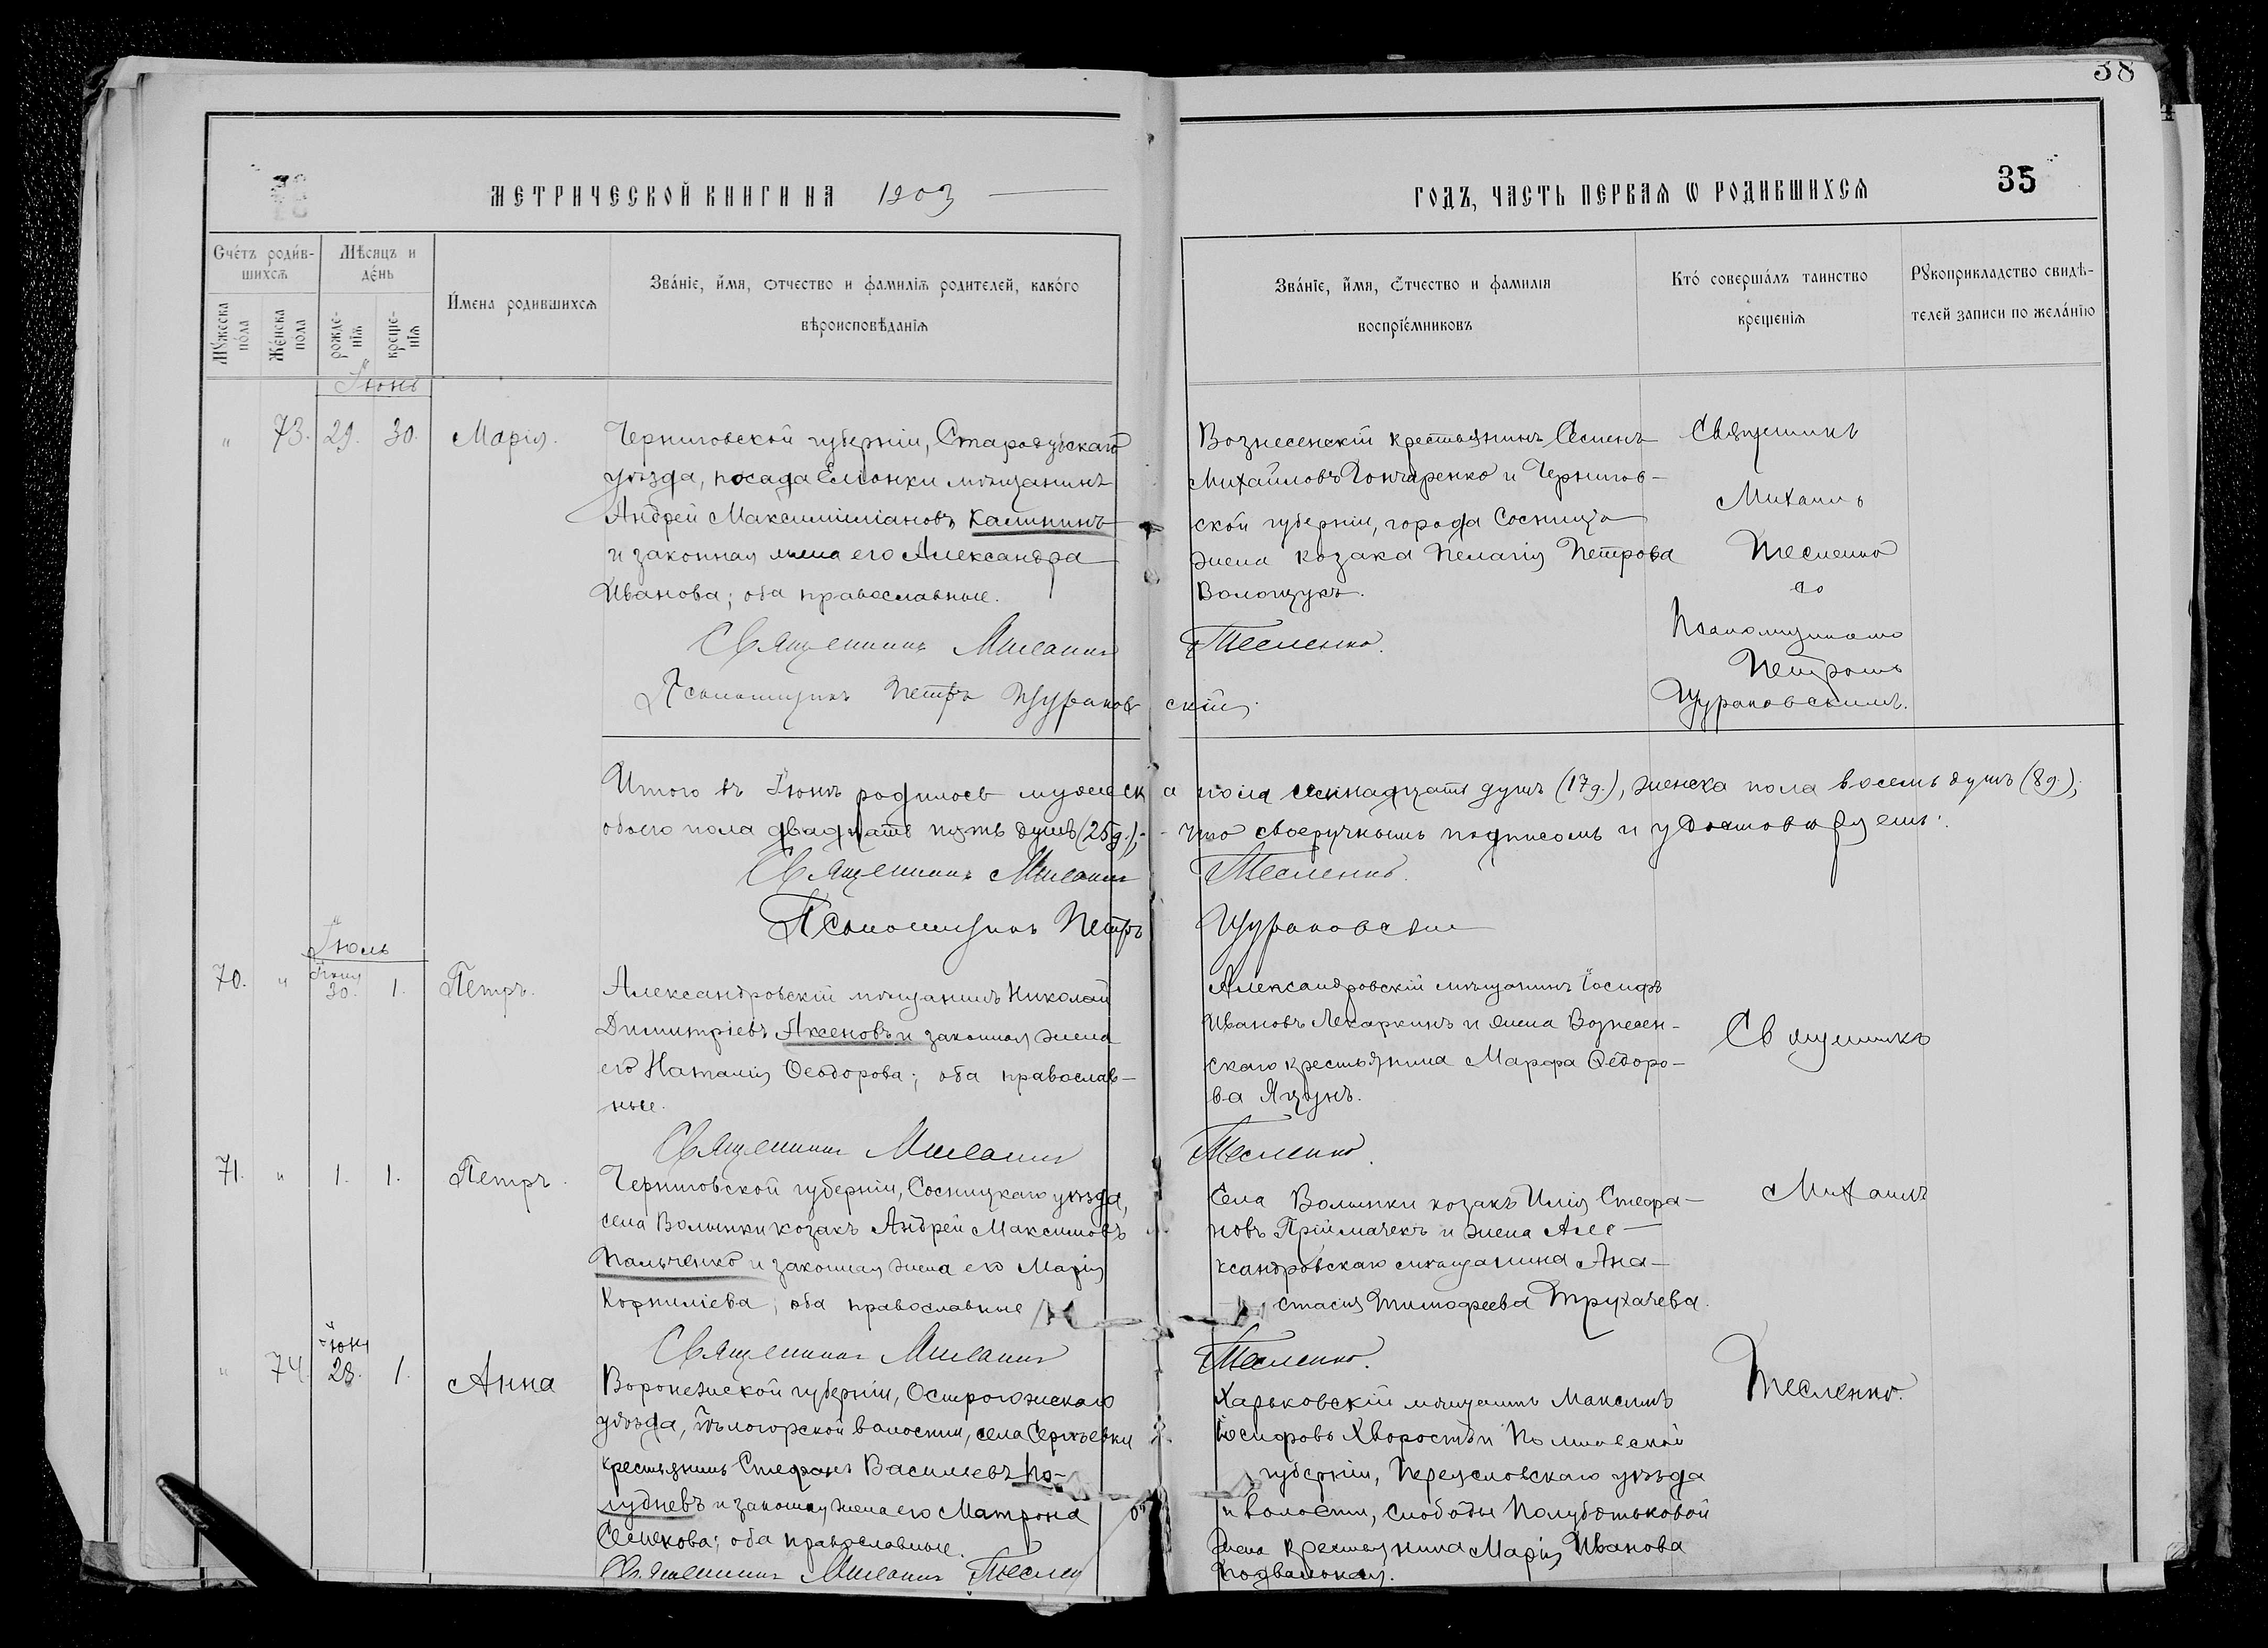 38
МЕТРИЧЕСКОЙ КНИГИ НА 1903
ГОДЪ, ЧАСТЬ ПЕРВАЯ Ѡ РОДИВШИХСЯ
35
Счéтъ роди́в-
шихся
Мѣсяцъ и
дéнь
Мꙋжеска
пóла
Жéнска
пола
рожде-
нїя
креще-
нїя
И́мена родившихся
Звáнїе, и́мя, ѻтчество и фамилїя родителей, какóго
вѣроисповѣданїя
Звáнїе, и́мя, ѻтчество и фамилїя
воспрїéмниковъ
Ктó совершáлъ таинство
крещенїя
Рꙋкоприкладство свидѣ-
телей записи по желáнїю
Іюнь
" 73. 29. 30. Марія.
Черниговской губерніи, Стародубскаго
уѣзда, посада Еліонки мѣщанинъ
Андрей Максимиліановъ Калининъ
и законная жена его Александра
Иванова; оба православные.
Священникъ Михаилъ Тесленко.
Псаломщикъ Петръ Цураковскій.
Вознесенскій крестьянинъ Семенъ
Михайловъ Гончаренко и Чернигов-
ской губерніи, города Сосницы
жена козака Пелагія Петрова
Волощукъ.
Священникъ
Михаилъ
Тесленко
со
Псаломщикомъ
Петромъ
Цураковскимъ.
Итого въ Іюнѣ родилось мужеска пола семнадцать душъ (17 д.), женска пола восемь душъ (8 д.);
обоего пола двадцать пять душъ (25 д.); - что своеручнымъ подписомъ и удостовѣряемъ:
Священникъ Михаилъ Тесленко.
Псаломщикъ Петръ Цураковскій
Іюль
70. " Іюня 30. 1. Петръ.
Александровскій мѣщанинъ Николай
Димитріевъ Аксеновъ и законная жена
его Наталія Ѳеодорова; оба православ-
ные.
Священникъ Михаилъ Тесленко.
Александровскій мѣщанинъ Іосифъ
Ивановъ Лекаркинъ и жена Вознесен-
скаго крестьянина Марфа Ѳедоро-
ва Яцунъ.
Священникъ
71. " 1. 1. Петръ.
Черниговской губерніи, Сосницкаго уѣзда,
села Волынки козакъ Андрей Максимовъ
Пальченко и законная жена его Марія
Корниліева; оба православные
Священникъ Михаилъ Тесленко.
Села Волынки козакъ Илія Стефа-
новъ Пріймачекъ и жена Але-
ксандровскаго мѣщанина Ана-
стасія Тимофеева Трухачева.
Михаилъ
" 74. Іюня 28. 1. Анна
Воронежской губерніи, Острогожскаго
уѣзда, Бѣлогорской волости, села Сергѣевки
крестьянинъ Стефанъ Васильевъ По-
лудневъ и законная жена его Матрона
Семенова; оба православные.
Священникъ Михаилъ Теслен
Харьковскій мѣщанинъ Максимъ
Іосифовъ Хворость и Полтавской
губерніи, Переяславскаго уѣзда
и волости, слободы Полуботьковой
жена крестьянина Марія Ивановa
Тесленко.